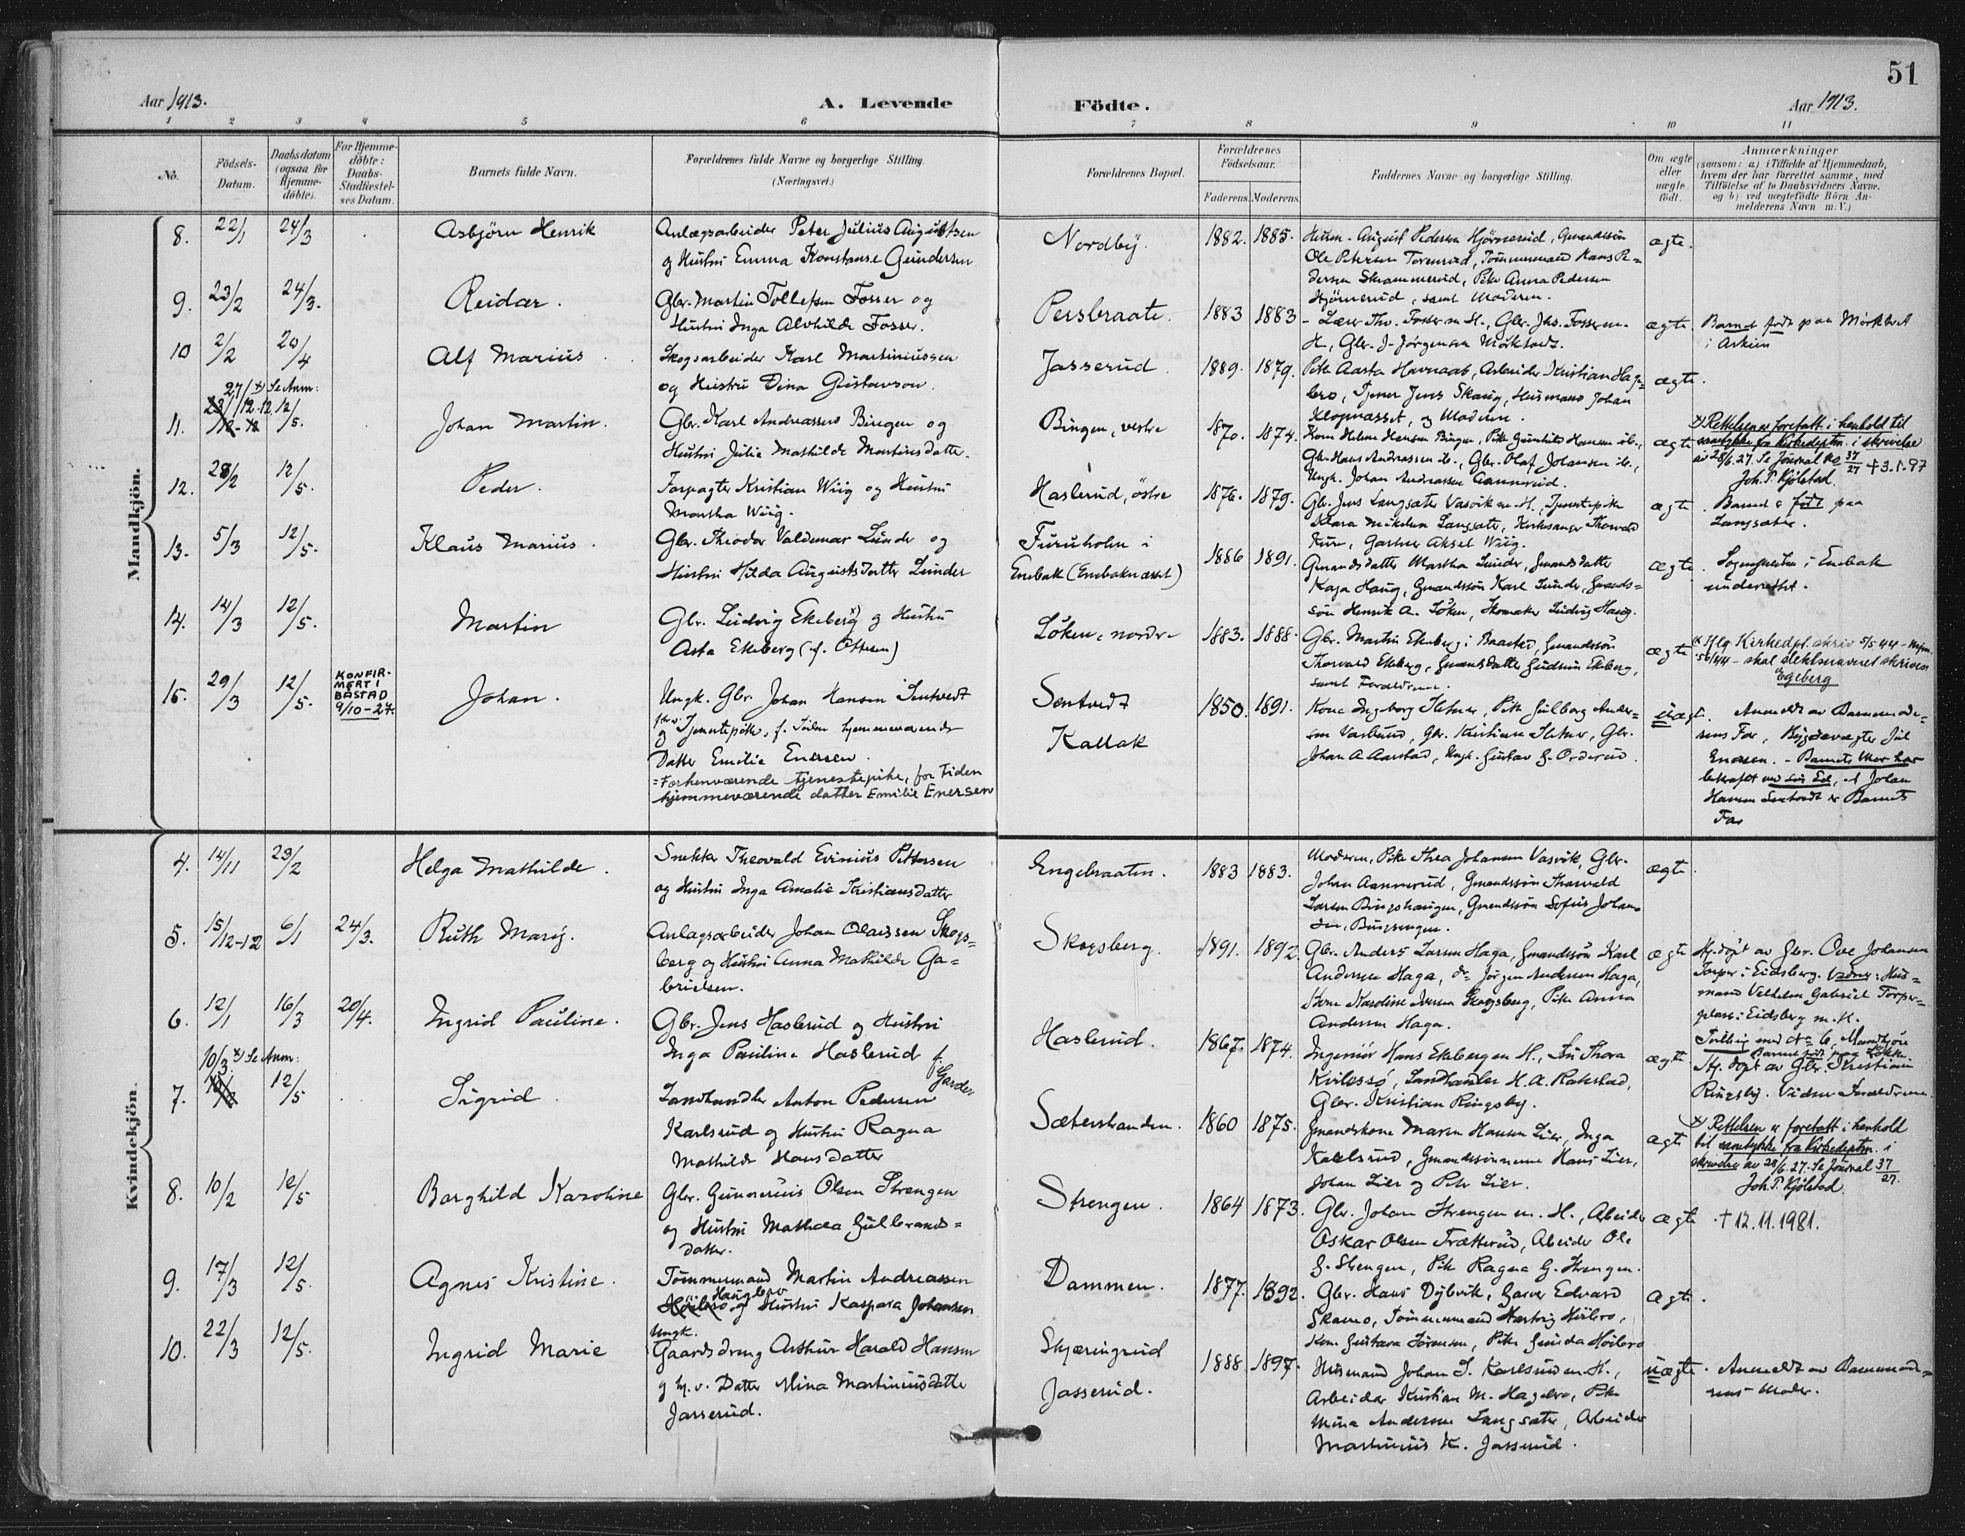 51
Aar 1913.
A. Levende
Födte.
Aar 1913.
1 2 3 4 5 6 7 8 9 10 11
No.
Födsels-
Datum.
Daabsdatum
(ogsaa for
Hjemme-
döbte).
For Hjemme-
döbte:
Daabs-
Stadfæstel-
ses Datum.
Barnets fulde Navn.
Forældrenes fulde Navne og borgerlige Stilling.
(Næringsvei.)
Forældrenes Bopæl.
Forældrenes
Födselsaar.
Faderens. Moderens.
Faddernes Navne og borgerlige Stilling.
Om ægte
eller
uægte
födt.
Anmærkninger
(saasom: a) i Tilfælde af Hjemmedaab,
hvem der har forrettet samme, med
Tilföielse af to Daabsvidners Navne.
og b) ved uægtefödte Börn An-
melderens Navn m. V.)
Mandkjön.
8. 22/1 24/3 Asbjörn Henrik
Anlægsarbeider Peter Julius Augustsen
og Hustru Emma Konstanse Gundersen
Nordby. 1882. 1885.
August Pedersen Hjörnerud, Gmandssön
Ole Petersen Torensrud, Tömmermand Hans Pe-
dersen Skrammerud, Pike Anna Pedersen
Hjörnerud, samt Moderen.
ægte.
9. 23/2 24/3. Reidar.
Gbr. Martin Tollefsen Fosser og
Hustru Inga Alvhilde Fosser.
Persbraate. 1883 1883
Lærer Thv. Fosser m. H., Gbr. Jhs. Fosser m.
H., Gbr. J. Jörgensen Mörktvedt.
ægte. Barnet födt paa Mörktvet
i Askim
10 2/2 20/4 Alf Marius.
Skogsarbeider Karl Martiniussen
og Hustru Dina Gustavson.
Jasserud. 1889. 1879.
Pike Aasta Havnaas, Arbeider Kristian Hag-
bro, Tjener Jens Skaug, Husmand Johan
Klopnasset, og Moderen.
ægte.
27/12-12 x) Se Anm:
11. 12/5. Johan Martin.
Gbr. Karl Andreassen Bingen og
Hustru Julie Mathilde Martinsdatter.
Bingen, vestre 1870. 1874.
Kone Helene Hansen Bingen, Pike Gunhild Hansen ib.,
Gbr. Hans Andreassen ib., Gbr. Olaf Johansen ib.,
Ungk. Johan Andreassen Aannerud.
ægte
x) Rettelsen er foretatt i henhold til
samtykke fra Kirkedeptm. i skrivelse
av 28/6.27. Se Journal no 37/27 + 3.1.97
Joh. P. Kjölstad.
12. 28/2 12/5. Peder.
Forpagter Kristian Wiig og Hustru
Martha Wiig.
Haslerud, östre 1876. 1879.
Gbr. Jens Langsæter Vasvik m. H., Tjenestepike
Klara Mikelsen Langsæter, Kirkesanger Thorvald
Kure, Gartner Aksel Wiig.
ægte. Barnet er födt paa
Langsæter.
13. 5/3 12/5. Klaus Marius.
Gbr. Theodor Valdemar Lunder og
Hustru Hilda Augustsdatter Lunder
Furuholm i
Enebak (Enebaknæsset) 1886 1891.
Gmandsdatter Martha Lunder, Gmandsdatter
Kaja Haug, Gmandssön Karl Lunder, Gmands-
sön Henrik A. Löken, Skomaker Ludvig Haug.
ægte. Sognepresten i Enebak
underrettet.
14. 14/3 12/5. Martin
Gbr. Ludvig Ekeberg x) og Hustru
Asta Ekeberg (f. Ottesen)
Löken, nordre 1883. 1888.
Gbr. Martin Ekeberg i Baastad, Gmandssön
Thorvald Ekeberg, Gmandsdatter Gudrun Ekeberg,
samt Forældrene.
ægte
x) Iflg Kirkedpt. skriv 5/5 44
skal slektsnavnet skrives
Egeberg
15. 29/3 12/5.
KONFIR-
MERT I
BÅSTAD
9/10-27.
Johan.
Ungk. Gbr. Johan Hansen Sentvedt
og fhv. Tjenestepike, f. Tiden hjemmeværende
Datter Emilie Enersen.
=Forhenværende tjenestepike, for tiden
hjemmeværende datter Emilie Enersen
Sentvedt
Kallak
1850. 1891.
Kone Ingeborg Sletner, Pike Gulborg Ander-
sen Vaslund, Gbr. Kristian Sletner, Gbr.
Johan A. Aarstad, Ungk. Gustav G. Orderud.
uægte.
Anmeldt av Barnemode-
rens Far, Bygdevægter Jul
Enersen. - Barnets Mor har
bekræftet ved sin Ed, at Johan
Hansen Sentvedt er Barnets
Far
Kvindekjön.
4. 14/11 23/2 Helga Mathilde.
Snekker Theovald Evinius Pettersen
og Hustru Inga Amalie Kristiansdatter
Engebraaten. 1883 1883.
Moderen, Pike Thea Johansen Vasvik, Gbr.
Johan Aannerud, Gmandssön Thorvald
Larsen Bingshaugen, Gmandssön Sofus Johan-
sen, Bingsengen.
ægte.
5. 15/12-12 6/1 24/3. Ruth Mary.
Anlægsarbeider Johan Olaussen Skogs-
berg og Hustru Anna Mathilde Ga-
brielsen.
Skogsberg. 1891. 1892.
Gbr. Anders Larsen Haga, Gmandssön Karl
Andersen Haga, do Jörgen Andersen Haga,
Kone Karoline Iversen Skogsberg, Pike Anna
Andersen Haga.
ægte
Hj. döpt av Gbr. Ove Johansen
Torper i Eidsberg. Vidner: Hus-
mand Velhelm Gabriel Torper-
plass i Eidsberg m. H.
6. 12/1 16/3 20/4. Ingrid Pauline.
Gbr. Jens Haslerud og Hustru
Inga Pauline Haslerud f.
Garder
Haslerud. 1867. 1874.
Ingeniör Hans Ekeberg m. H., Fru Thora
Kvilessö, Landhandler H. A. Rakstad,
Gbr. Kristian Ringsby.
ægte
Tvilling med No 6, Mandkjön
Barnet födt paa Löken.
Hj. döpt av Gbr. Kristian
Ringsby. Vidner Forældrene.
10/3. x) Se Anm:
7. 12/5 Sigrid.
Landhandler Anton Pedersen
Karlsrud og Hustru Ragna
Mathilde Hansdatter
Sæterstranden. 1860 1875.
Gmandskone Maren Hansen Lier, Inga
Karlsrud, Gmandssönnerne Hans Lier,
Johan Lier og Peter Lier.
ægte
x) Rettelsen er foretatt i henhold
til samtykke fra Kirkedeptm. i
skrivelse av 28/6.27. Se Journal 37/27.
Joh. P. Kjölstad.
8. 10/2 12/5 Borghild Karoline
Gbr. Gunnerius Olsen Strengen
og Hustru Mathea Gulbrands-
datter.
Strengen. 1864 1873.
Gbr. Johan Strengen m. H., Arbeider
Oskar Olsen Trætterud, Arbeider Ole
G. Strengen, Pike Ragna G. Strengen.
ægte. + 12.11.1981.
9. 17/3 12/5. Agnes Kristine.
Tömmermand Martin Andreassen
Haugbro
Höibro og Hustru Kaspara Johansen
Dammen. 1877. 1892.
Gbr. Hans Dybvik, Garver Edvard
Skamo, Tömmermand Hartvig Höibro,
Kone Gustava Sörensen, Pike Gunda Höibro
ægte.
10. 22/3 12/5. Ingrid Marie
Ungk.
Gaardsdreng Arthur Harald Hansen
og hj. v. Datter Mina Martiniusdatter
Jasserud.
Skjæringrud
Jasserud.
1888 1897.
Husmand Johan S. Karlsrud m. H.,
Arbeider Kristian M. Hagebro, Pike
Mina Andersen Langsæter, Arbeider
Martinius K. Jasserud.
uægte.
Anmeldt av Barnemode-
rens Moder.